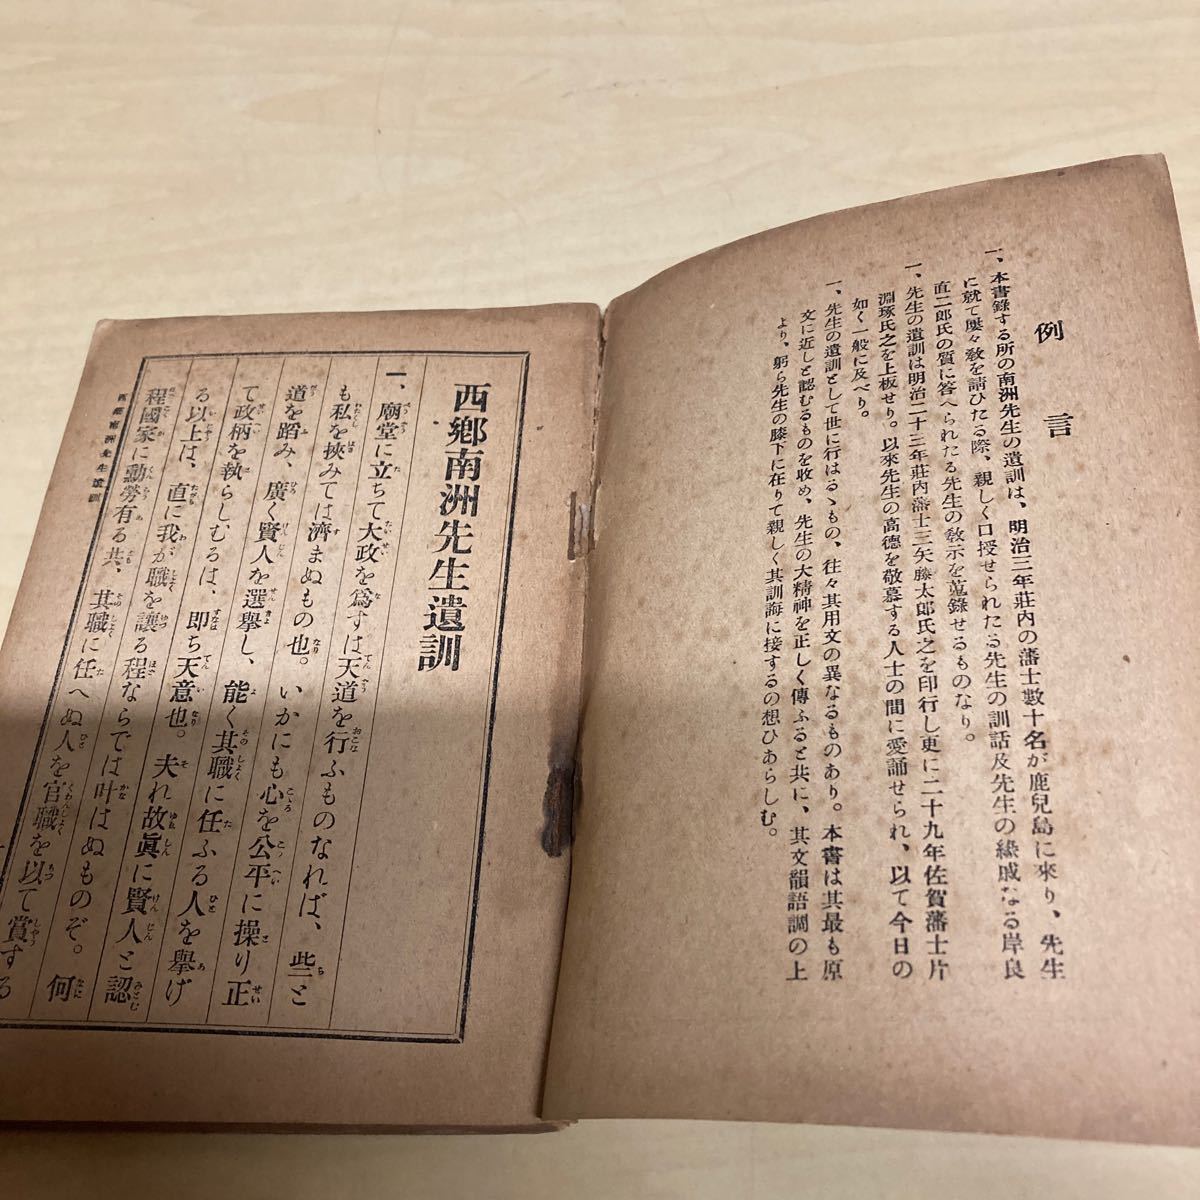 例言
一、本書錄する所の南洲先生の遺訓は、明治三年莊内の藩士數十名が鹿兒島に來り、先生
に就て屢々敎を請ひたる際、親しく口授せられたる先生の訓話及先生の緣戚なる岸良
直二郎氏の質に答へられたる先生の敎示を蒐錄せるものなり。
一、先生の遺訓は明治二十三年莊内藩士三矢藤太郎氏之を印行し更に二十九年佐賀藩士片
淵琢氏之を上板せり。以來先生の高德を敬慕する人士の間に愛誦せられ、以て今日の
如く一般に及べり。
一、先生の遺訓として世に行はるゝもの、往々其用文の異なるものあり。本書は其最も原
文に近しと認むるものを收め、先生の大精神を正しく傳ふると共に、其文韻語調の上
より、躬ら先生の膝下に在りて親しく其訓誨に接するの想ひあらしむ。
西鄕南洲先生遺訓
一、廟堂に立ちて大政を爲すは天道を行ふものなれば、些と
も私を挾みては濟まぬもの也。いかにも心を公平に操り正
道を踏み、廣く賢人を選擧し、能く其職に任ふる人を擧げ
て政柄を執らしむるは、即ち天意也。夫れ故眞に賢人と認
る以上は、直に我が職を讓る程ならでは叶はぬものぞ。何
程國家に勳勞有る共、其職に任へぬ人を官職を以て賞する
西鄕南洲先生遺訓